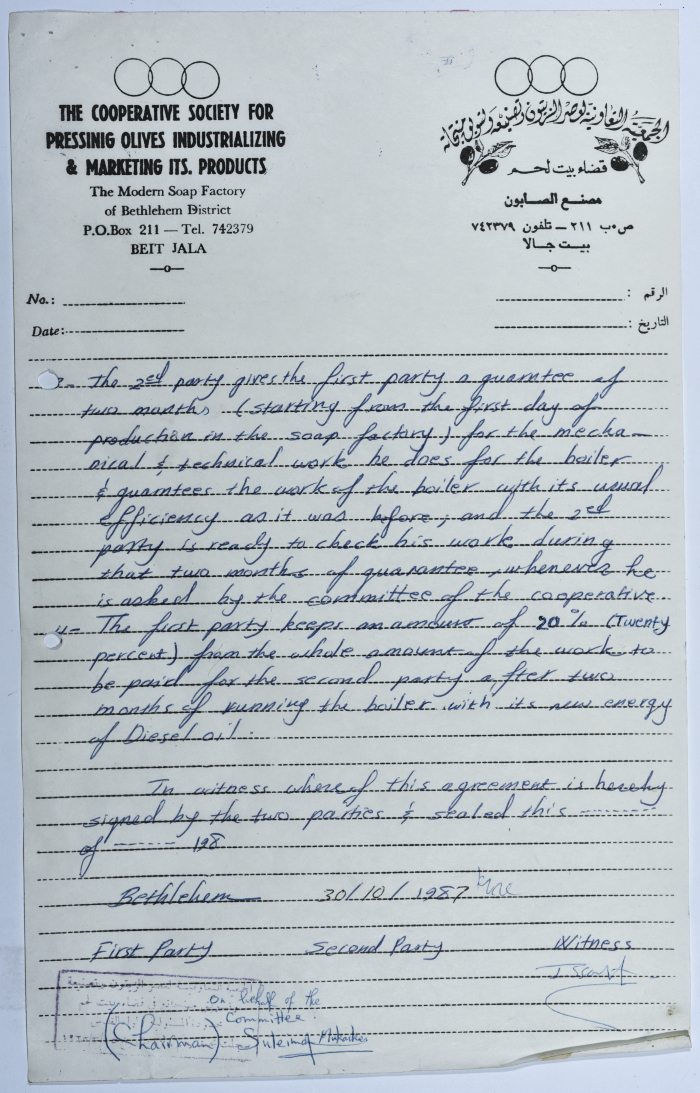 THE COOPERATIVE SOCIETY FOR
PRESSINIG OLIVES INDUSTRIALIZING
& MARKETING ITS. PRODUCTS
The Modern Soap Factory
of Bethlehem District
P.O.Box 211 — Tel. 742379
BEIT JALA
الجمعية التعاونية لعصر الزيتون وتصنيعه وتسويق منتجاته
قضاء بيت لحم
مصنع الصابون
ص.ب ٢١١ — تلفون ٧٤٢٣٧٩
بيت جالا
No.:
الرقم :
Date:
التاريخ :
3- The 2ed party gives the first party a guarntee of
two months (starting from the first day of
production in the soap factory) for the mecha-
nical & technical work he does for the boiler
& guarntees the work of the boiler with its usual
efficiency as it was before, and the 2ed
party is ready to check his work during
that two months of guarantee, whenever he
is asked by the committee of the cooperative.
4- The first party keeps an amount of 20% (Twenty
percent) from the whole amount of the work to
be paid for the second party after two
months of running the boiler with its new energy
of Diesel oil.
In witness whereof this agreement is hereby
signed by the two parties & sealed this -------
of ------- 198
Bethlehem 30/10/1987
First Party Second Party Witness
On behalf of the
Committee.
(Chairman) Suleiman